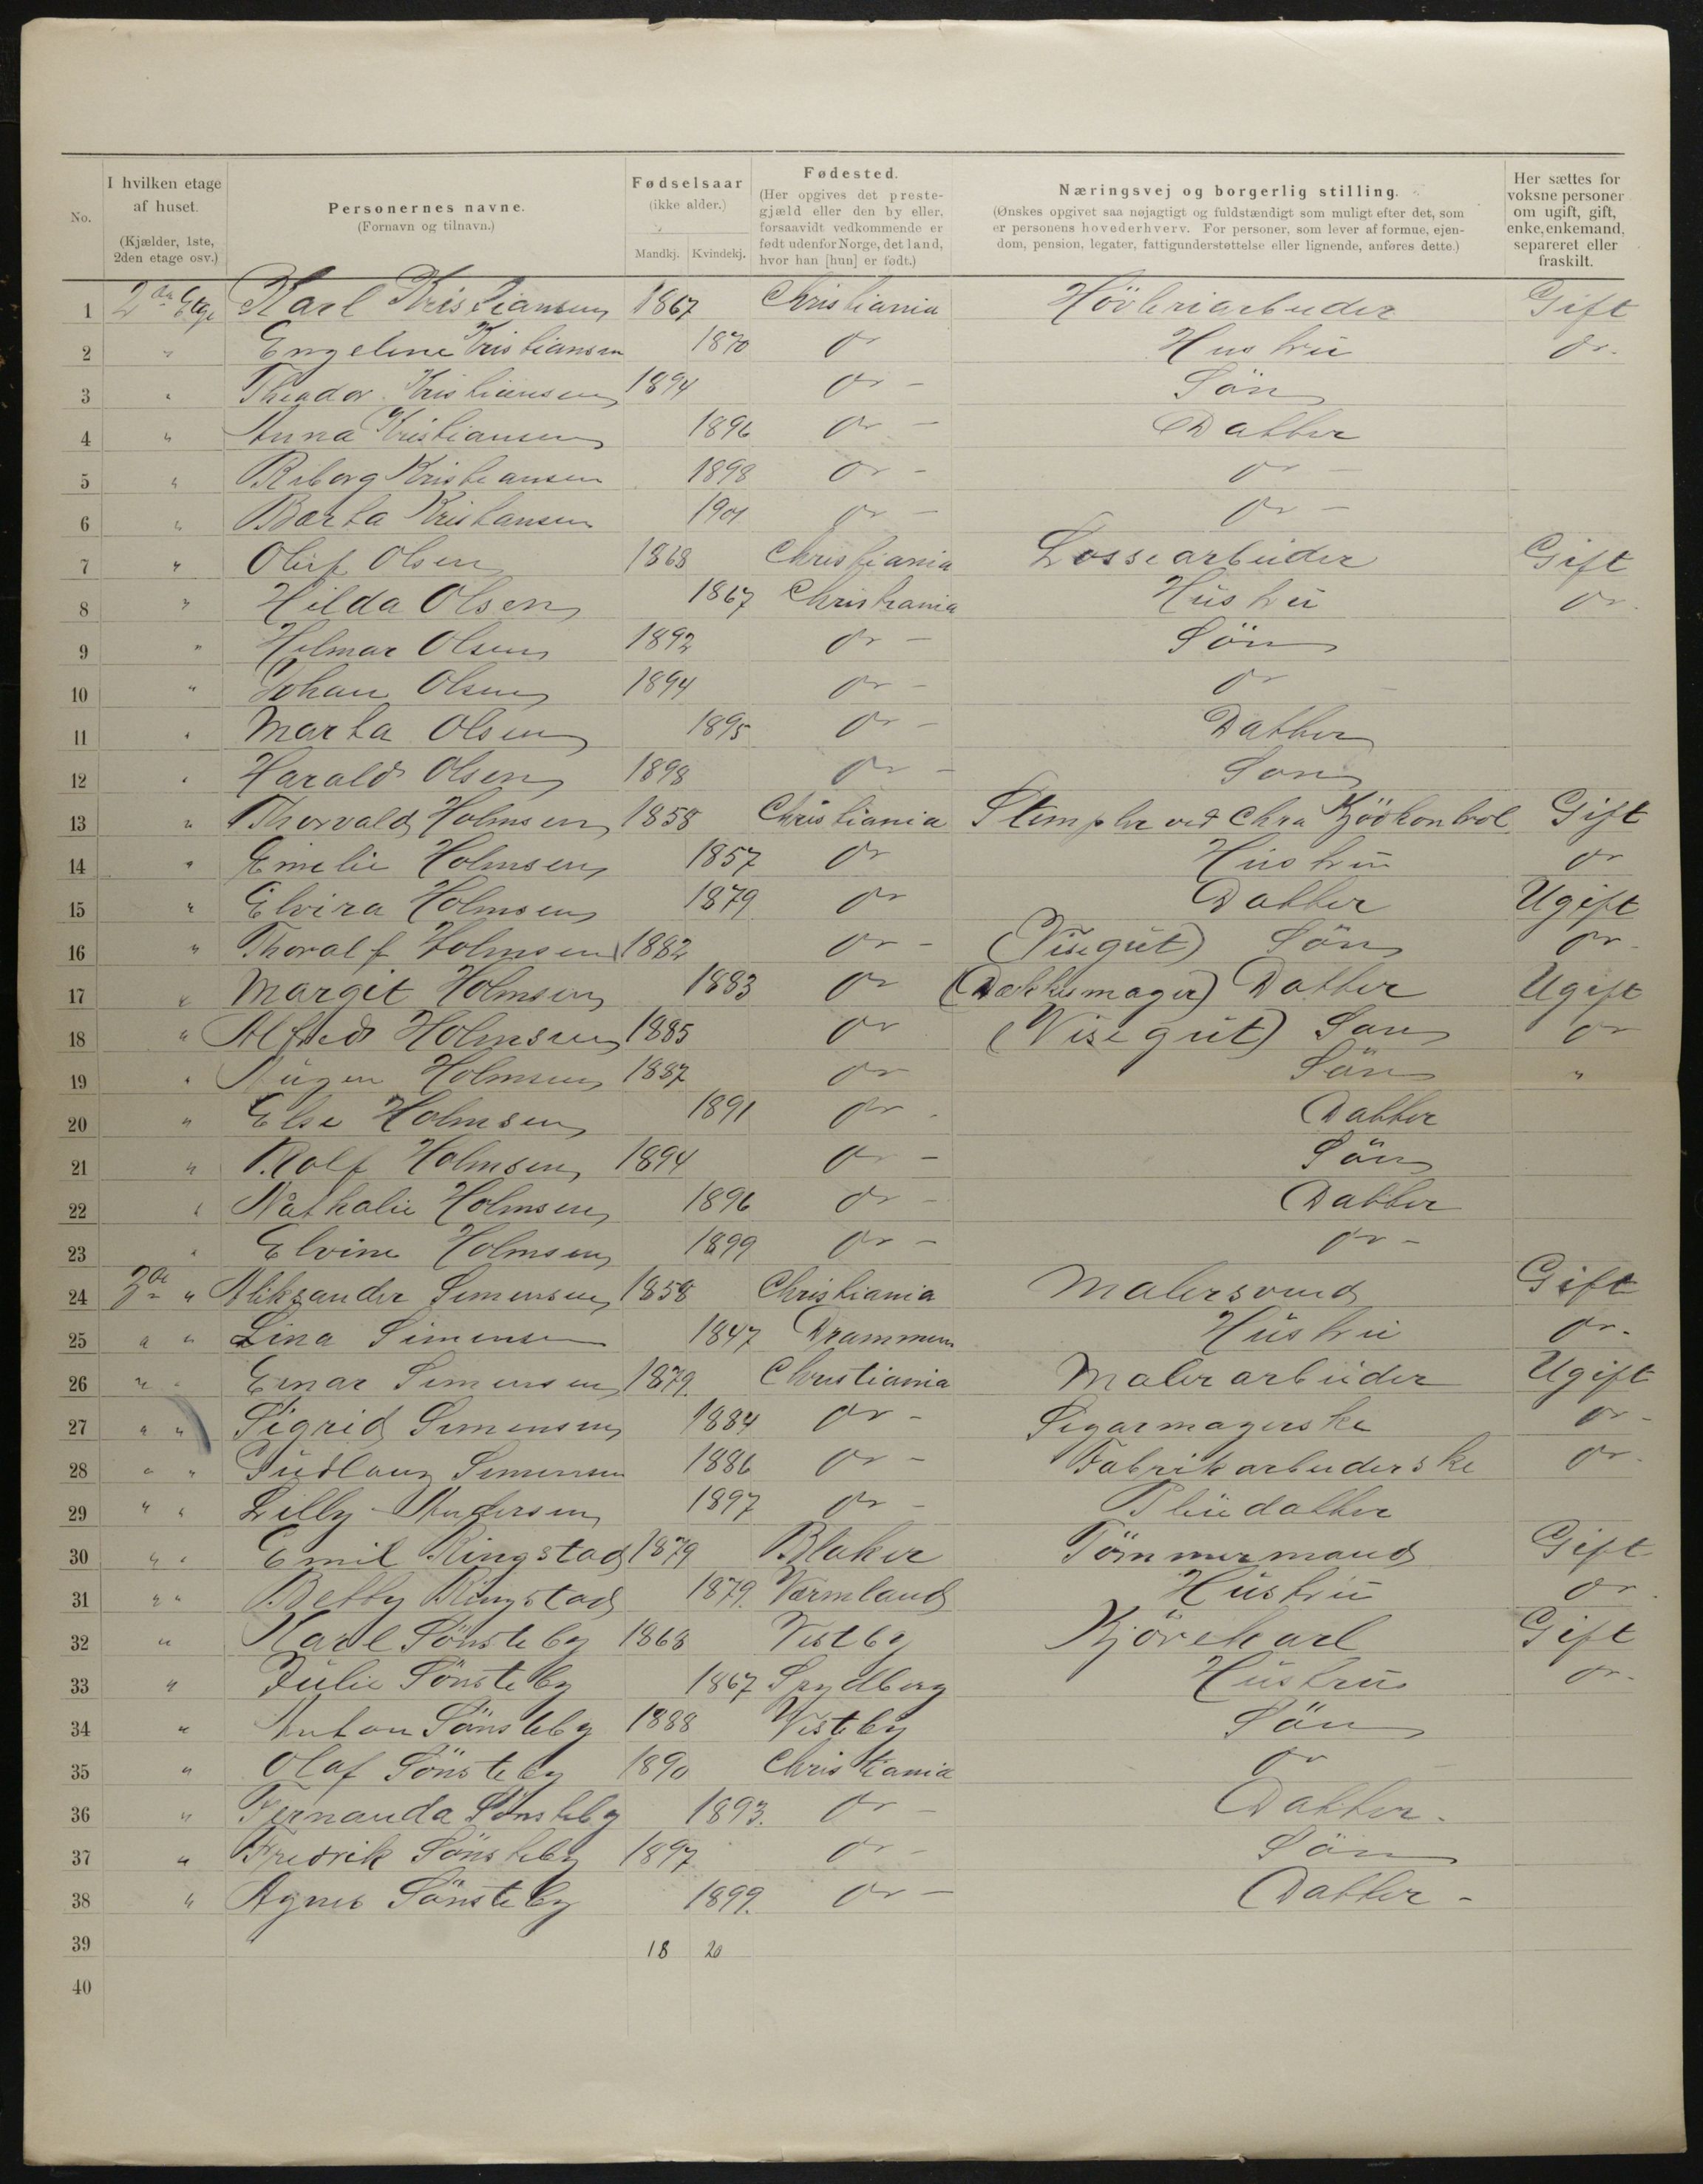 No.
I hvilken etage af huset. (Kjælder, 1ste, 2den etage osv.)
Personernes navne. (Fornavn og tilnavn.)
Fødselsaar (ikke alder.)
Mandkj. Kvindekj.
Fødested. (Her opgives det prestegjæld eller den by eller, forsaavidt vedkommende er født udenfor Norge, det land, hvor han [hun] er født.)
Næringsvej og borgerlig stilling. (Ønskes opgivet saa nøjagtigt og fuldstændigt som muligt efter det, som er personens hovederhverv. For personer, som lever af formue, ejendom, pension, legater, fattigunderstøttelse eller lignende, anføres dette.)
Her sættes for voksne personer om ugift, gift, enke, enkemand, separeret eller fraskilt.
1 2den Etge Karl Kristiansen 1867 Christiania Hövleriarbeider Gift
2 " Engeline Kristiansen 1870 do Hustru do.
3 " Theador Kristiansen 1894 do - Sön
4 " Anna Kristiansen 1896 do - Datter
5 " Riborg Kristiansen 1898 do - do -
6 " Barta Kristansen 1901 do - do -
7 " Oluf Olsen 1868 Christiania Lossearbeider Gift
8 " Hilda Olsen 1867 Christiania Hustru do.
9 " Hilmar Olsen 1892 do - Sön
10 " Johan Olsen 1894 do - do -
11 " Marta Olsen 1895 do - Datter
12 " Harald Olsen 1898 do - Son
13 " Thorvald Holmsen 1858 Christiania Stempler ved Chra Kjödkontrol Gift
14 " Emelie Holmsen 1857 do Hustru do
15 " Elvira Holmsen 1879 do Datter Ugift
16 " Thoralf Holmsen 1882 do - (Visegut) Sön do -
17 " Margit Holmsen 1883 do Datter Ugift
18 " Alfred Holmsen 1885 do (Visegut) Son do
19 " Holmsen 1887 do Sön "
20 " Else Holmsen 1891 do . Datter
21 " Rolf Holmsen 1894 do - Sön
22 " Nathalie Holmsen 1896 do - Datter
23 " Elvine Holmsen 1899 do - do -
24 3de " Aliksander Simensen 1858 Christiania Malersvend Gift
25 " " Lina Simensen 1847 Drammen Hustru do.
26 " " Einar Simensen 1879. Christiania Malerarbeider Ugift
27 " " Sigrid Simensen 1884 do - Sigarmagerske do -
28 " " Gudlaug Simensen 1886 do - Fabrikarbeiderske do.
29 " " Lilly Andersen 1897 do - Pleiedatter
30 " " Emil Ringstad 1879 Blaker Tömmermand Gift
31 " " Betty Ringstad 1879. Värmland Hustru do.
32 " Karl Sönsteby 1868 Vestby Kjörekarl Gift
33 " Julie Sönsteby 1867 Spydberg Hustru do -
34 " Anton Sönsteby 1888 Vestby Sön
35 " Olaf Sönsteby 1890 Christiania do -
36 " Fernanda Sönsteby 1893. do - Datter.
37 " Fredrik Sönsteby 1897 do - Sön
38 " Agnes Sönsteby 1899. do - Datter -
39 18 20
40